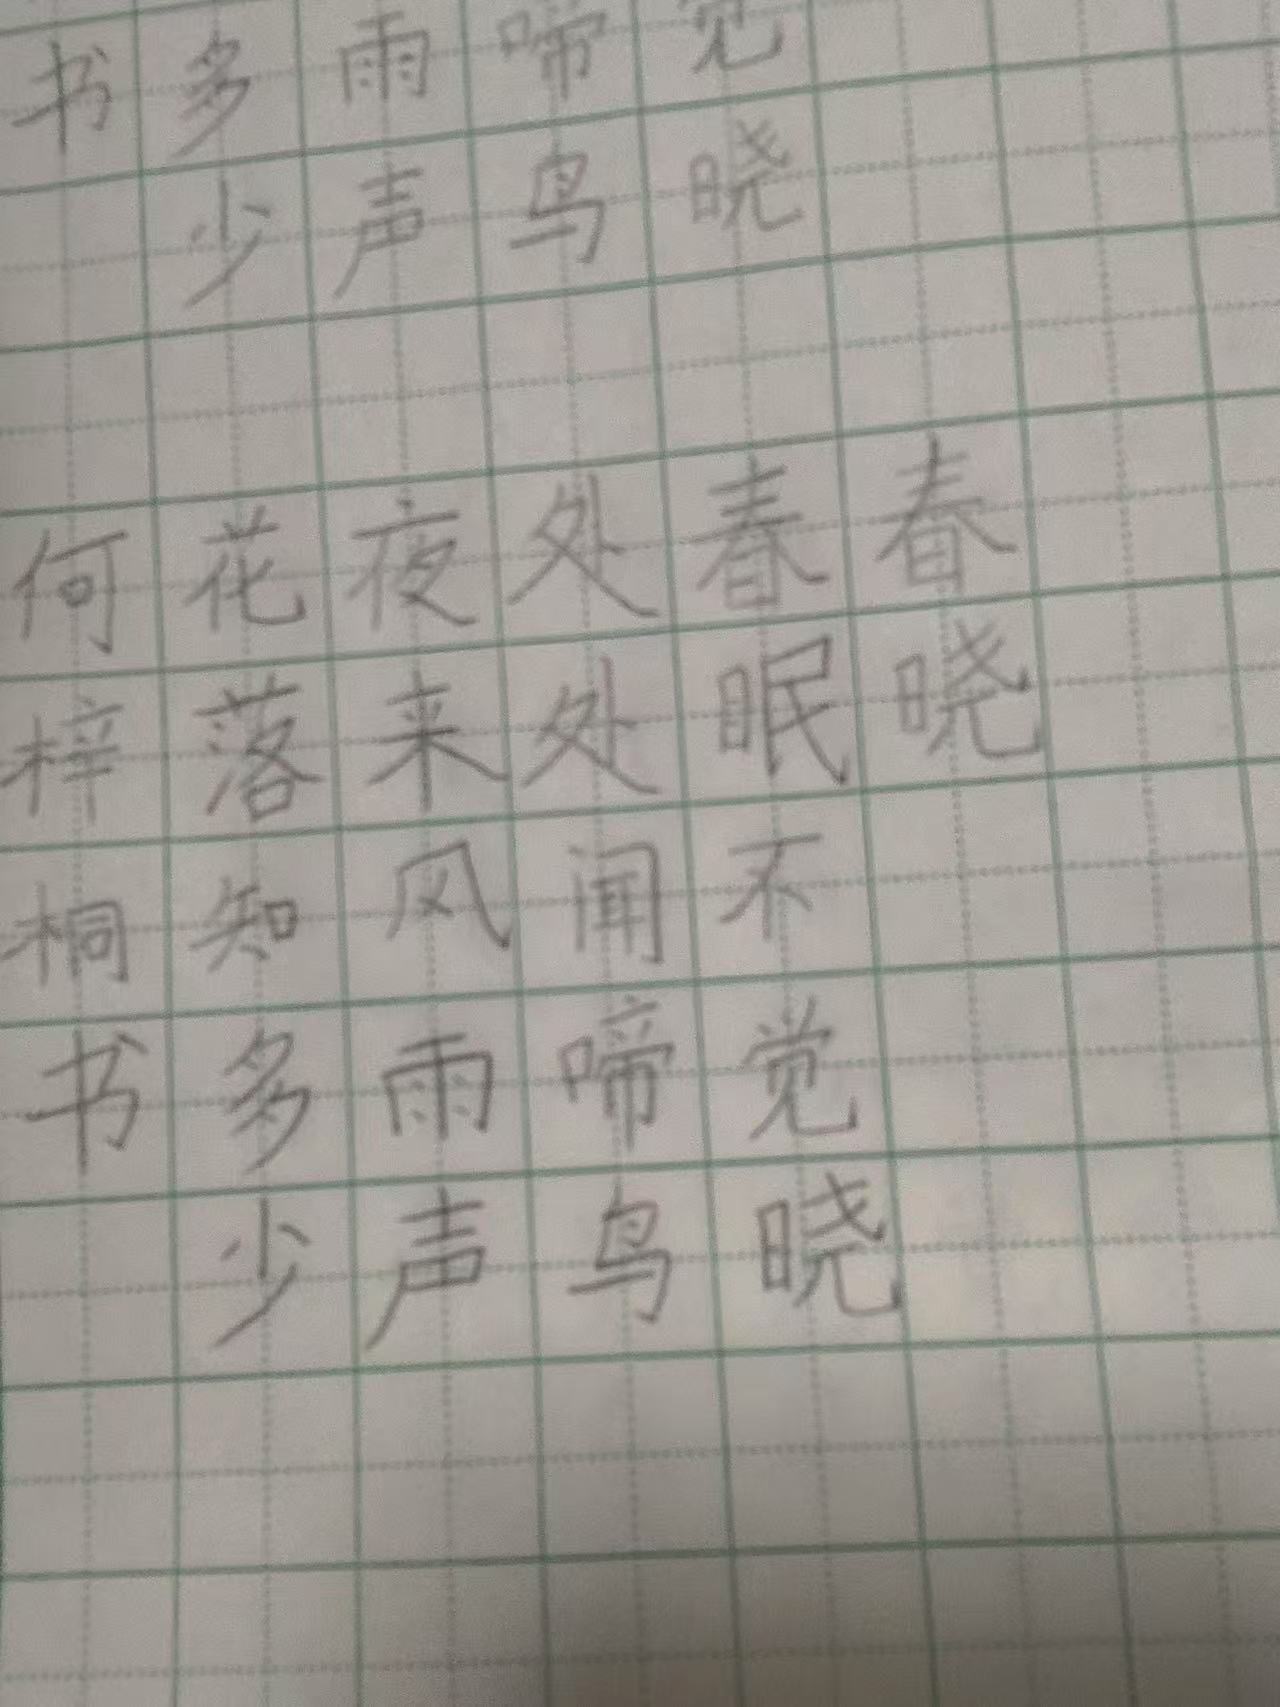 觉晓
啼鸟
雨声
多少
书
春晓
春眠不觉晓
处处闻啼鸟
夜来风雨声
花落知多少
何梓桐书